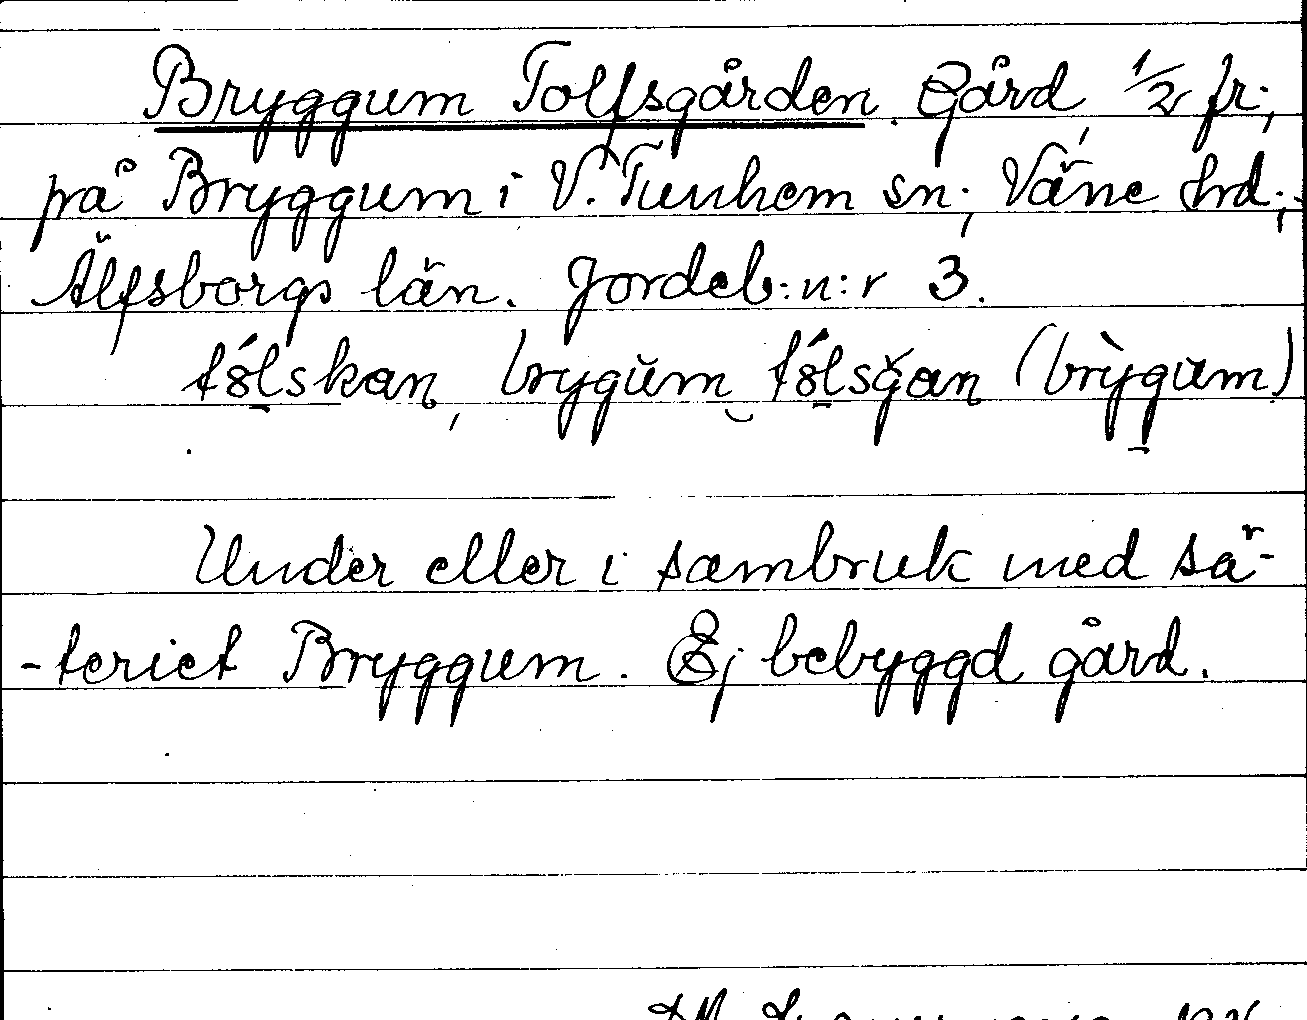 Bryggum Tolfsgården. Gård, 1/2 fr.,
på Bryggum i V. Tunhem sn., Väne hd.,
Älfsborgs län. Jordeb:n:r 3.
tɵ́lskan, brygŭm‿tɵ́lsğan (brỳgŭm)
Under eller i sambruk med sä-
-teriet Bryggum. Ej bebyggd gård.